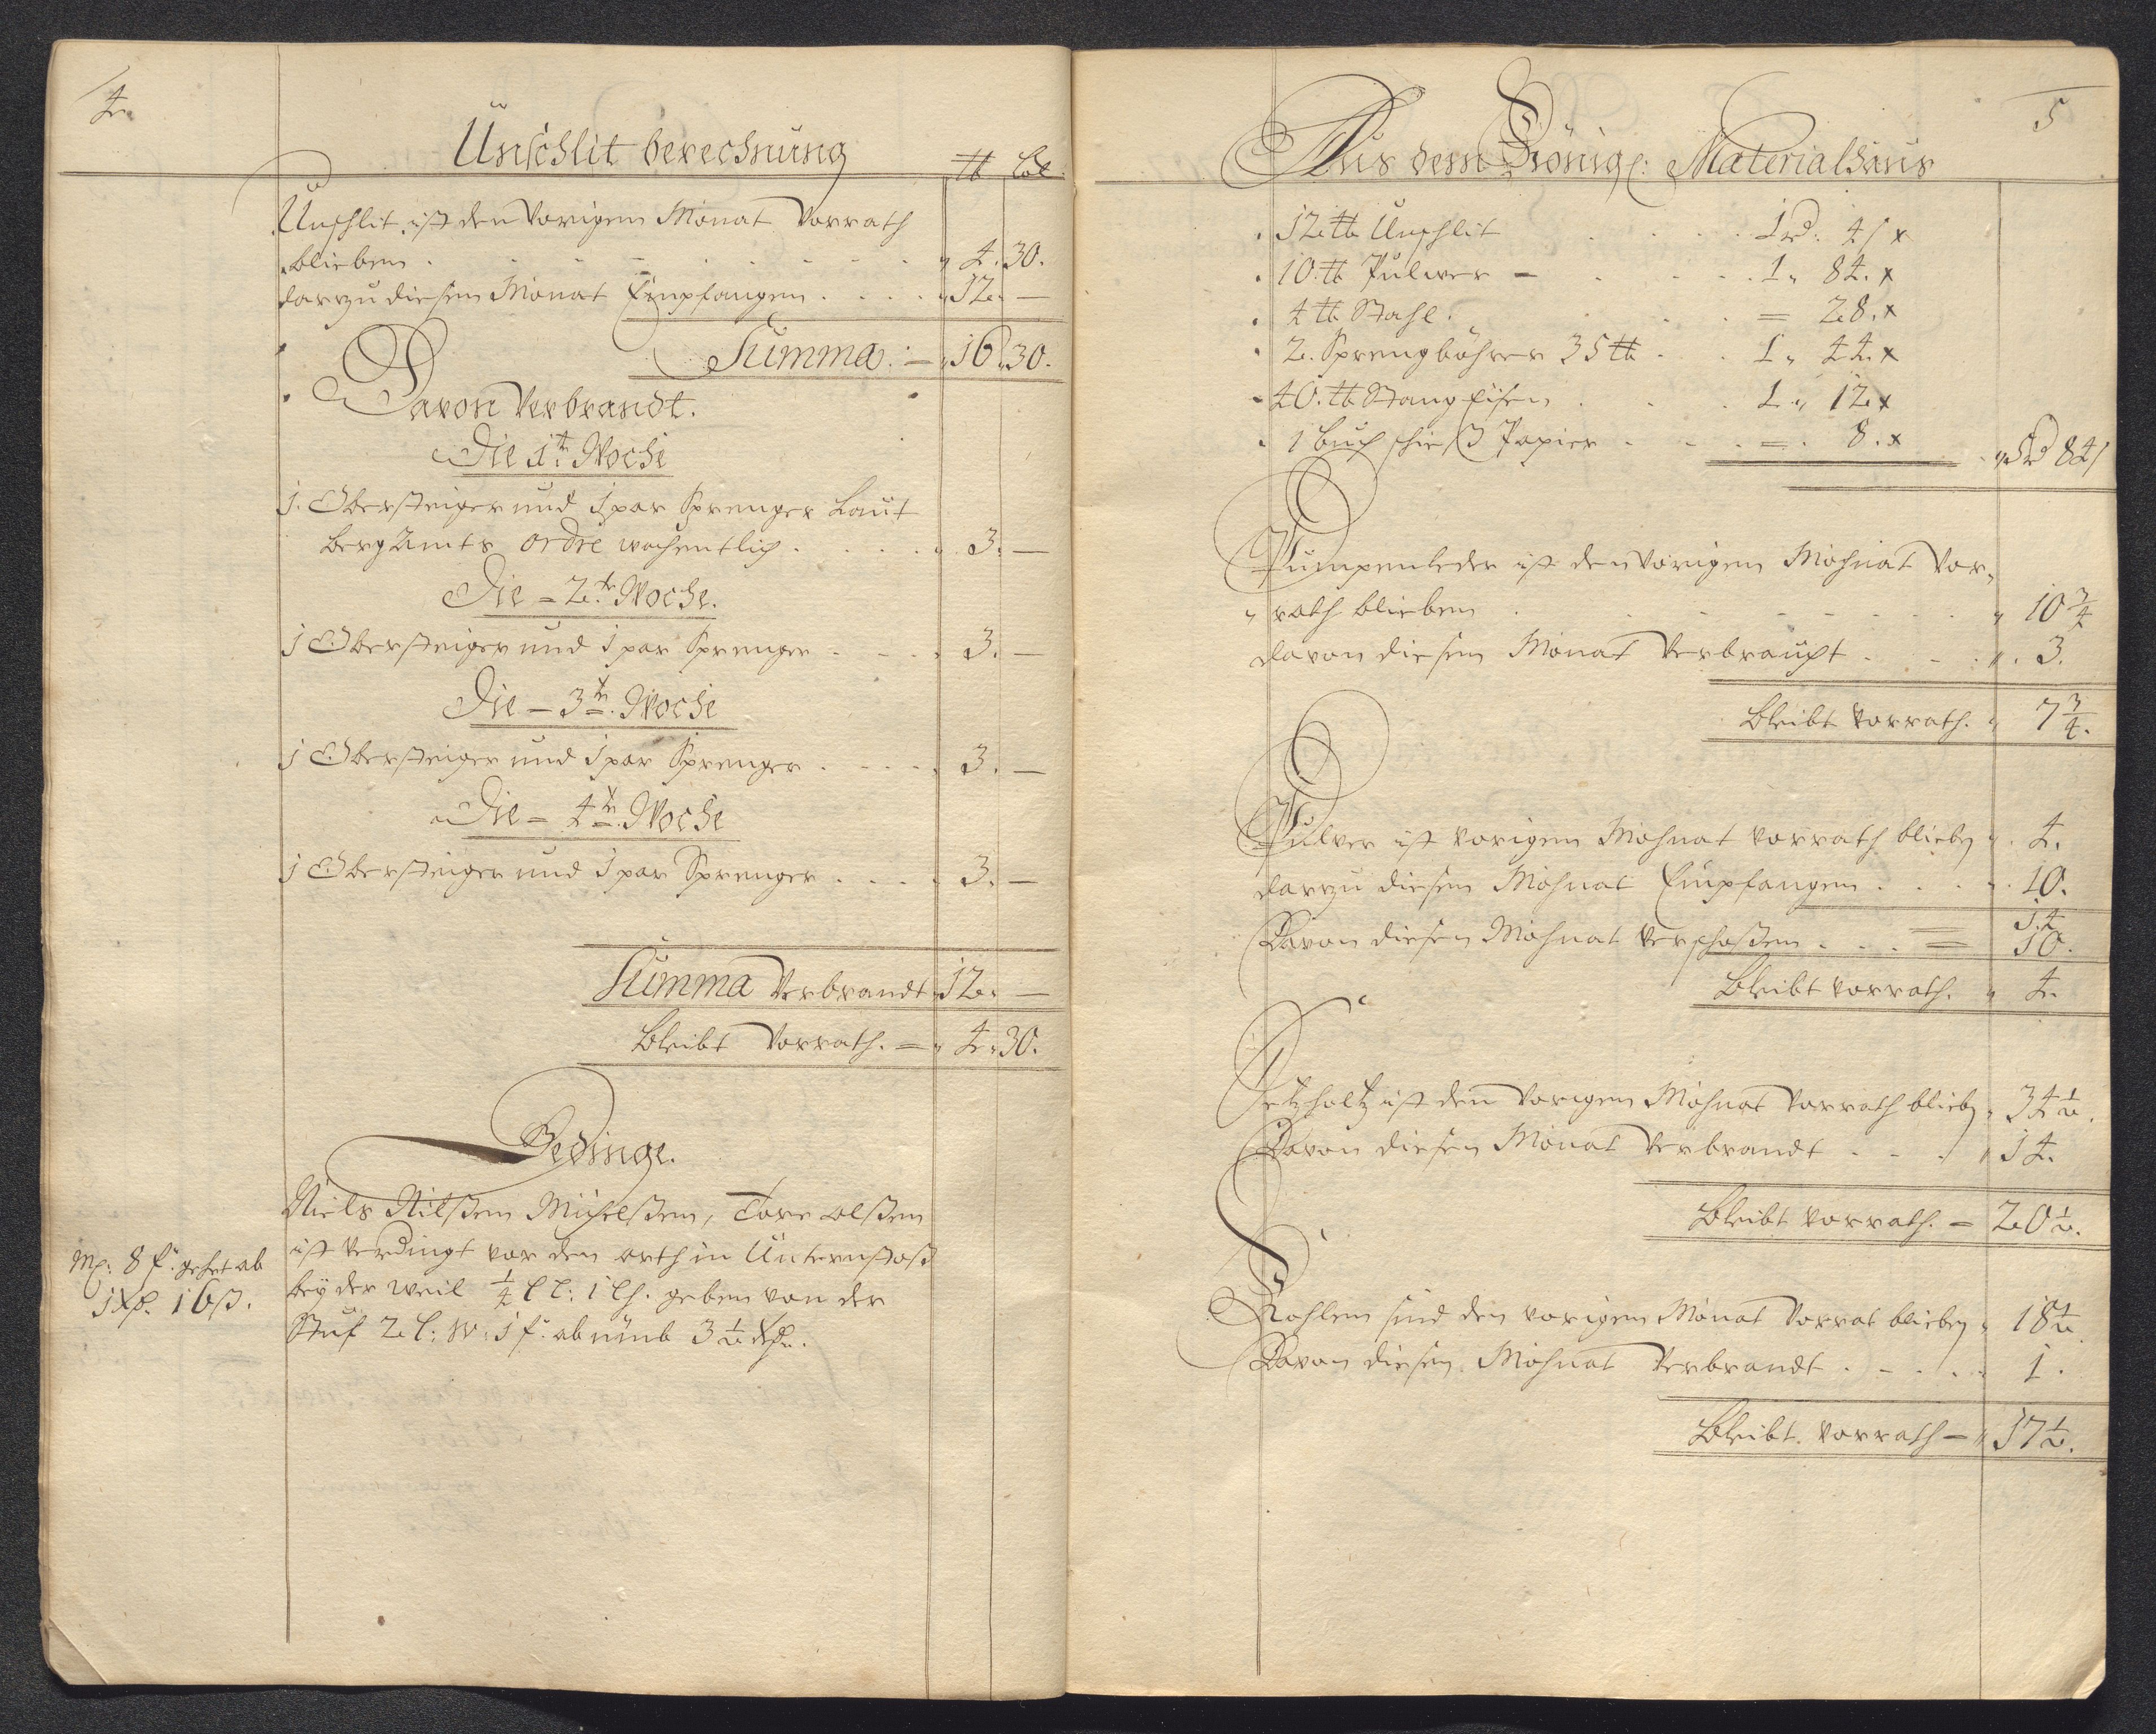 4.
Unschlit berechnung
℔ Lot
Unschlit ist den Vorigen Monat Vorrath
blieben . . . 4. 30.
darzu diesen Monat Empfangen . . . . 12. —
Summa. — 16. 30.
Davon Verbrandt.
Die 1te Woche
1. Obersteiger und 1 par Sprenger Laut
bergAmts ordre wochentlich . . . . . 3. —
Die = 2te Woche.
1 Obersteiger und 1 par Sprenger - - . 3. —
Die — 3te Woche
1 Obersteiger und 1 par Sprenger . . . . 3. —
Die = 4te Woche
1 Obersteiger und 1 par Sprenger . . . . 3. —
Summa Verbrandt 12. —
bleibt Vorrath. = 4. 30.
Gedinge.
Niels Nilßen Michelßen, Tore olßen
ist verdingt vor den orth in Unternstoß
bey der weil 1/4 geben von der
Stuf 2 l: w: 1 f: ab umb 3 1/2
8 f: gehet ab
16 ß.
5
Aus dem Königl: Materialhaus
12 ℔ Unschlit . . . 1 rd: 41 x
10. ℔ Pulver - . . . 1 " 84. x
4 ℔ Stahl. . . = 28. x
2. Sprengböhrer 35 ℔ . . 1 " 44. x
40. ℔ Stang Eisen . . . 1 " 12 x
1 buch schieß Papier . . . = . 8. x
5 rd 84 /
Pumpenleder ist den Vorigen Mohnat Vor=
rath blieben . . . 10 3/4
davon diesen Monat Verbraucht . . . 3.
bleibt Vorrath. " 7 3/4.
Pulver ist vorigen Mohnat vorrath blieben . 4.
darzu diesen Mohnat Empfangen . . . . 10.
14
Davon diesen Mohnat verschoßen . . . = 10.
bleibt vorrath. " 4.
Setzholtz ist den Vorigen Mohnat Vorrath blieben " 34 1/2.
Davon diesen Monat Verbrandt . . . " 14.
bleibt vorrath. = 20 1/2.
Kohlen sind den vorigen Monat Vorrat blieben " 18 1/2
Davon diesen Mohnat Verbrandt . . . . 1.
bleibt vorrath = " 17 1/2.